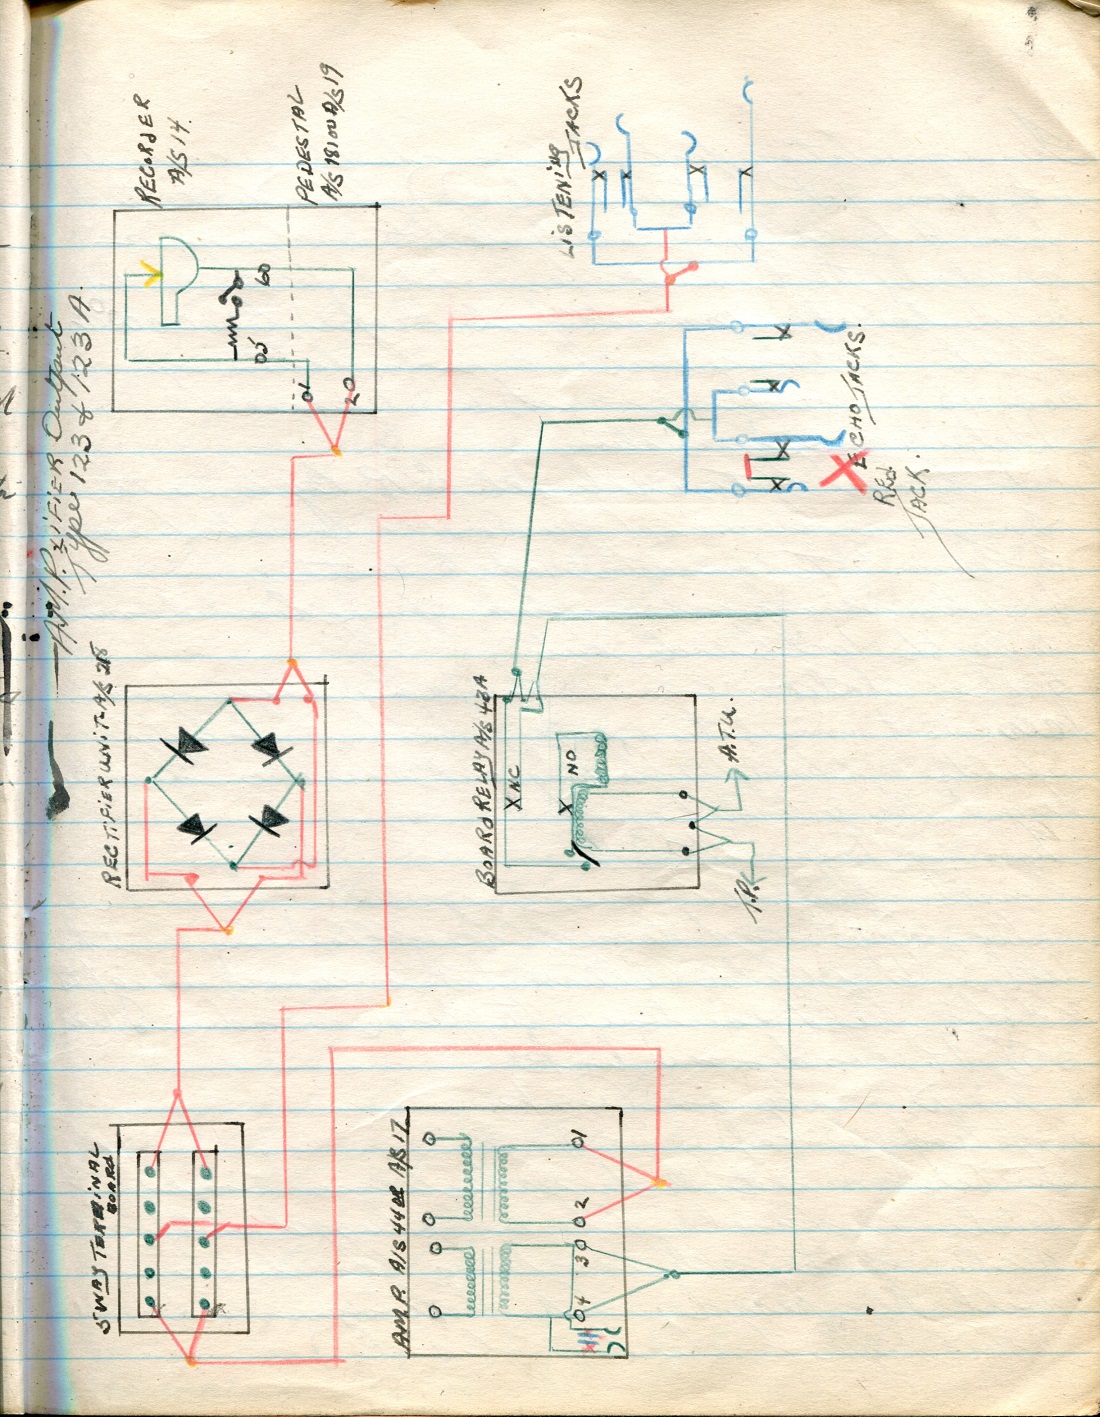 AMPLIFIER Output
Type 123 & 123A.
RECORDER
A/S 14.
PEDESTAL
A/S 18100 A/S 19
60
01
20
LISTENING
JACKS
ECHO JACKS.
RED
JACK.
RECTIFIER UNIT A/S 28
BOARD RELAY A/S 42A
X NC
X NO
A.T.U.
T.P.
5 WAY TERMINAL
BOARD
AMP. A/S 44 A/S 17
01
02
30
04